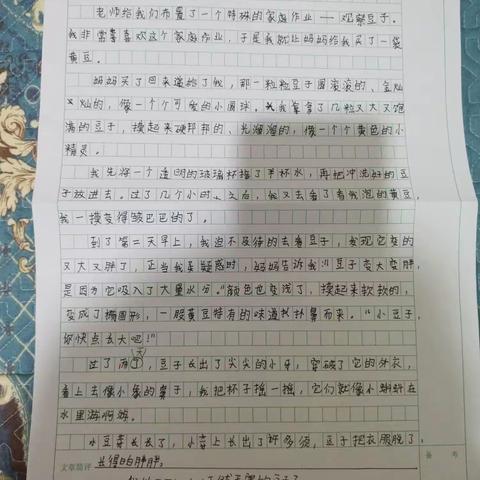 老师给我们布置了一个特殊的家庭作业——观察豆子。
我非常喜欢这个家庭作业，于是我就让妈妈给我买了一袋
黄豆。
妈妈买了回来递给了我，那一粒粒豆子圆滚滚的、金灿
灿的，像一个个可爱的小圆球。我拿了几粒又大又饱
满的豆子，摸起来硬邦邦的、光溜溜的，像一个个黄色的小
精灵。
我先将一个透明的玻璃杯接了半杯水，再把冲洗好的豆
子放进去。过了几个小时之后，我又去看了看我泡的黄豆，
我一摸变得皱巴巴的了。
到了第二天早上，我迫不及待的去看豆子，发现它变的
又大又胖了，正当我疑惑时，妈妈告诉我："豆子变大变胖，
是因为它吸入了大量水分。"颜色也变浅了，摸起来软软的，
变成了椭圆形，一股黄豆特有的味道扑鼻而来。"小豆子，
你快点长大吧！"
过了两天，豆子长出了尖尖的小牙，穿破了它的外衣，
看上去像小象的鼻子，我把杯子摇一摇，它们就像小蝌蚪在
水里游啊游。
小豆芽长长了，小芽上长出了许多须，豆子把衣服脱了，
长得胖胖，
文章简评
备 考